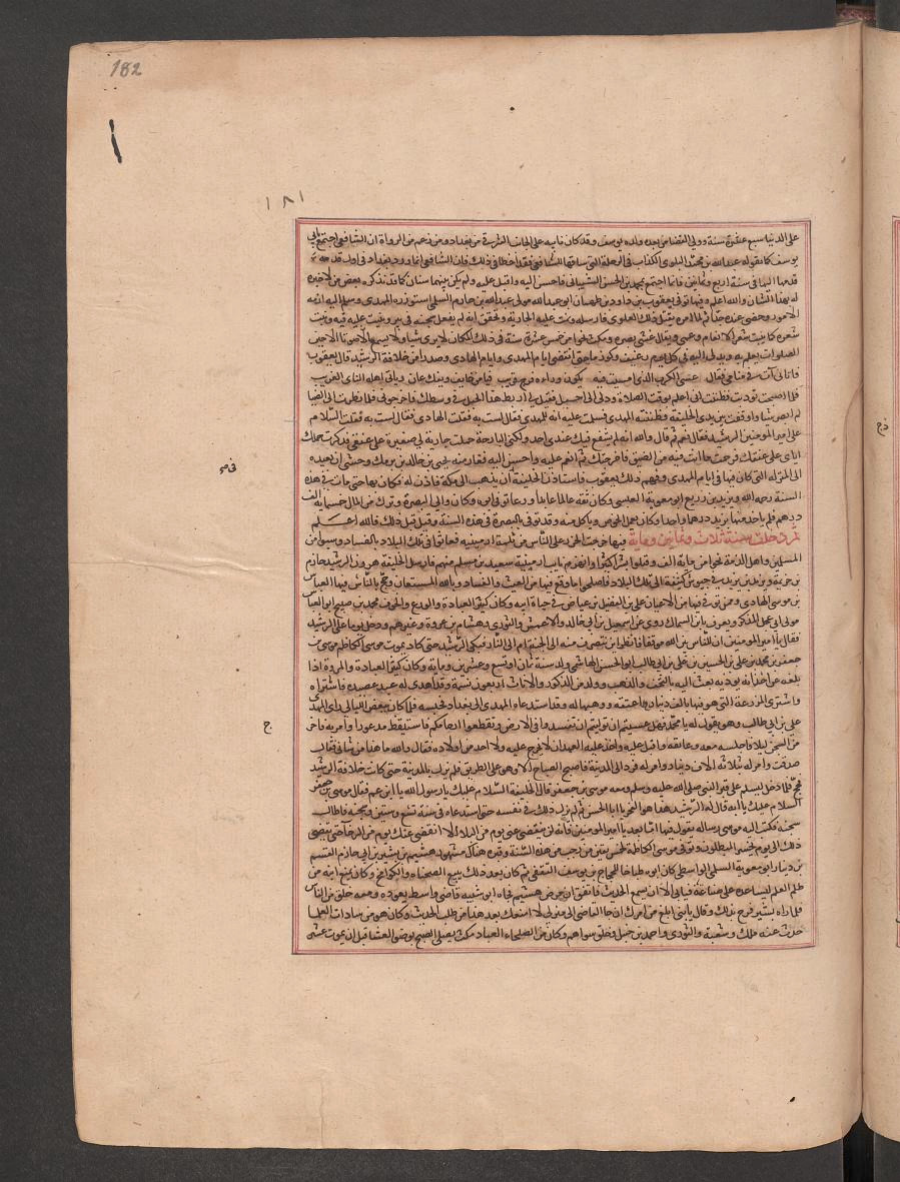 182
١٨١
على الدنيا سبع عشرة سنة وولي القضا من بعده ولده يوسف وقد كان نايبه على الجانب الشرقي من بغداد ومن زعم من الرواة ان الشافعي اجتمع بابي
يوسف كما يقوله عبد الله بن محمد البلوي الكذاب في الرحلة التي ساقها الشافعي فقد اخطا في ذلك فان الشافعي انما ورد بغداد في اول قدمة
قدمها اليها في سنة اربع وثمانين فانما اجتمع بمحمد بن الحسن الشيباني فاحسن اليه واقبل عليه ولم يكن بينهما شنان كما قد يذكره بعض من لا خبرة
له بهذا الشان والله اعلم وفيها توفي يعقوب بن داود بن طهمان ابو عبد الله مولى عبد الله بن حازم السلمي استوزره المهدي وسلم اليه ازمة
الامور وحضي عنده جدا ثم لما امره بقتل ذلك العلوي فارسله ونمت عليه الجارية وتحقق انه لم يفعل سجنه في بير وبنيت عليه قبة ونبت
شعره كما ينبت شعر الانعام وعمي ويقال عشي بصره ومكث نحوا من خمس عشرة سنة في ذلك المكان لا يرى شيا ولا يسمع الاصوتا الا حين
الصلوات يعلم به ويدلى اليه في كل يوم رغيف وكوز ما حتى انقضى ايام المهدي وايام الهادي وصدرا من خلافة الرشيد قال يعقوب
فاتاني آت في منامي فقال عسى الكرب الذي امسيت فيه يكون وراءه فرج قريب فيامن خايف ويفك عان وياتي اهله الناى الغريب
فلما اصبحت نوديت فظننت اني اعلم بوقت الصلاة ودلي الي حبل فقيل لي اربط هذا الحبل في وسطك فاخرجوني فلما نظرت الى الضيا
لم ابصر شيا واوقفت بين يدي الخليفة فظننته المهدي فسلمت عليه انه المهدي فقال لست به فقلت الهادي فقال لست به فقلت السلام
على امير المومنين الرشيد فقال نعم ثم قال والله انه لم يشفع فيك عندي احد ولكني البارحة حملت جارية لي صغيرة على عنقي فذكرت حملك
اياي على عنقك فرحمت ما انت فيه من الضيق فاخرجتك ثم انعم عليه واحسن اليه فغار منه يحيى بن خالد بن برمك وخشي ان يعيده
الى المنزلة التي كان فيها في ايام المهدي وفهم ذلك يعقوب فاستاذن الخليفة ان يذهب الى مكة فاذن له فكان بها حتى مات في هذه
السنة رحمه الله ويزيد بن زريع ابو معوية العيشي وكان ثقة عالما عابدا ورعا توفي ابوه وكان والي البصرة وترك من المال خمسماية الف
درهم فلم ياخذ منها يزيد درهما واحدا وكان يعمل الخوص وياكل منه وقد توفي بالبصرة في هذه السنة وقيل قبل ذلك فالله اعلم
ثم دخلت سنة ثلاث وثمانين وماية فيها خرجت الخزر على الناس من ثلمة ارمينية فعاثوا في تلك البلاد بالفساد وسبوا من
المسلمين واهل الذمة نحوا من ماية الف وقتلوا بشرا كثيرا وانهزم نايب ارمينية سعيد بن مسلم منهم فارسل الخليفة هرون الرشيد حازم
بن خزيمة ويزيد بن مزيد في جيوش كثيفة الى تلك البلاد فاصلحوا ما وقع فيها من العبث والفساد وبالله المستعان وحج بالناس فيها العباس
بن موسى الهادي وممن توفي فيها من الاعيان علي بن الفضيل بن عياض في حياة ابيه وكان كثير العبادة والورع والخوف محمد بن صبيح ابو العباس
مولى بني عجل المذكر ويعرف بابن السماك روى عن اسمعيل بن ابي خالد والاعمش والثوري وهشام بن عروة وغيرهم ودخل يوما على الرشيد
فقال يا امير المومنين ان للناس بين يدي الله موقفا فانظر اين منصرف منه الى الجنة ام الى النار فبكى الرشيد حتى كاد يموت موسى الكاظم موسى بن
جعفر بن محمد بن علي بن الحسين بن علي بن ابي طالب ابو الحسن الهاشمي ولد سنة ثمان او تسع وعشرين وماية وكان كثير العبادة والمروة اذا
بلغه عن احد انه يوذيه بعث اليه بالتحف والذهب وولد من الذكور والاناث اربعون نسمة وقد اهدى له عبد عصيدة فاشتراه
واشترى المزرعة التي هو فيها بالف دينار واعتقه ووهبها له وقد استدعاه المهدي الى بغداد فحبسه فلما كان بعض الليالي راى المهدي
علي بن ابي طالب وهو يقول له يا محمد فهل عسيتم ان توليتم ان تفسدوا في الارض وتقطعوا ارحامكم فاستيقظ مذعورا وامر به فاخرج
من السجن ليلا فاجلسه معه وعانقه واقبل عليه واخذ عليه العهد ان لا يخرج عليه ولا احد من اولاده فقال والله ما هذا من شاني فقال
صدقت وامر له بثلاثة الاف دينار وامر له فرد الى المدينة فما اصبح الصباح الا وهو على الطريق فلم يزل بالمدينة حتى كانت خلافة الرشيد
فحج فلما دخل ليسلم على قبر النبي صلى الله عليه وسلم ومعه موسى بن جعفر قال الخليفة السلام عليك يا رسول الله يا ابن عم فقال موسى بن جعفر
السلام عليك يا ابه قال له الرشيد هذا هو الفخر يا ابا الحسن ثم لم يزل ذلك في نفسه حتى استدعاه في سنة تسع وستين وسجنه فاطال
سجنه فكتب اليه موسى رسالة يقول فيها اما بعد يا امير المومنين فانه لن ينقضي عني يوم من البلاء الا انقضى عنك يوم من الرخا حتى نفضي
ذلك الى يوم يخسر المبطلون توفي موسى الكاظم لخمس بقين من رجب من هذه السنة وقبره هناك مشهور هشيم بن بشير بن ابي حازم القسم
بن دينار ابو معوية السلمي الواسطي كان ابوه طباخا للحجاج بن يوسف الثقفي ثم كان بعد ذلك يبيع الصحناة والكوامخ وكان يمنع ابنه من
طلب العلم ليساعده على صناعته فيابى الا ان يسمع الحديث فاتفق ان مرض هشيم فجاه ابو شيبة قاضي واسط يعوده ومعه خلق من الناس
فلما راه بشير فرح بذلك وقال يا بني ابلغ من امرك ان جا القاضي الى منزلي لا امنعك بعد هذا من طلب الحديث وكان هو من سادات العلما
حدث عنه ملك وشعبة والثوري واحمد بن حنبل وخلق سواهم وكان من الصلحاء العباد مكث يصلي الصبح بوضو العشا قبل ان يموت عشر
ج